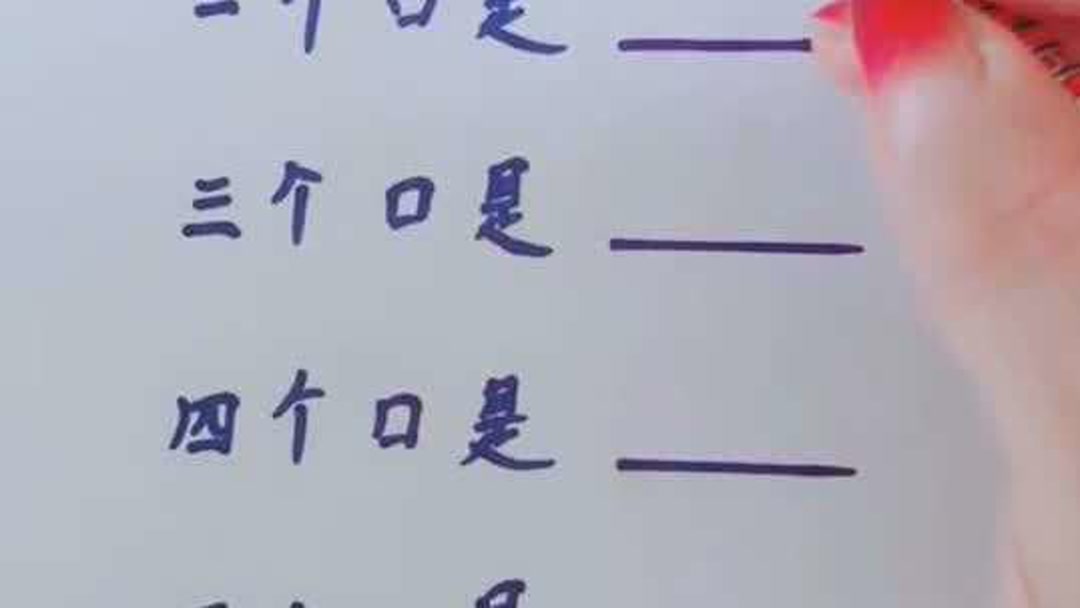 个口是
三个口是
四个口是
是